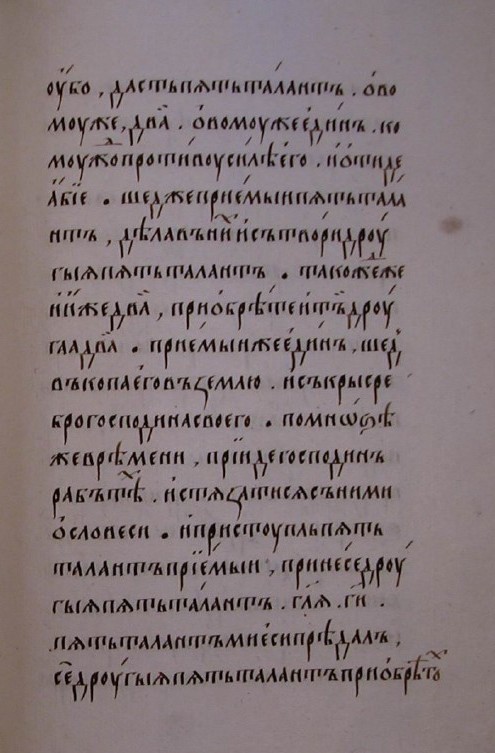 ᲂу҆́бо , дастьпѧтьта́лантъ . о҆́во
моуже , два̀ . о҆́вомоужее҆ди́нъ . ко
моуждопроти́воуси́лѣе҆го̀ . и҆ѿтиде
а҆́бїе . шеджеприе҆́мыипѧтьтала
нтъ , дѣ́лавъни́хи҆сътвориꙁдроу́
гыѧпѧтьталантъ . такождеже
и҆и҆жедва̀ , прио҆брѣ́теитъꙁдроу́
гаадва̀ . прие҆́мыижее҆ди́нъ , шед
въкопаегѡвъꙁемлю . и҆съкрысре
брогосподинасвоего . помноѕѣ
жеврѣмени , прїи́дегосподинъ
рабътѣх . и҆стѧꙁатисѧсъними
о҆словеси . и҆пристоупльпѧть
талантъприе҆́мыи , принесе́дроу́
гыѧпѧтьта́лантъ . гл҃ѧ . ги҃ .
пѧтьталантъмиесипрѣдалъ ,
седроу́гыѧпѧтьталантъприо҆брѣтох